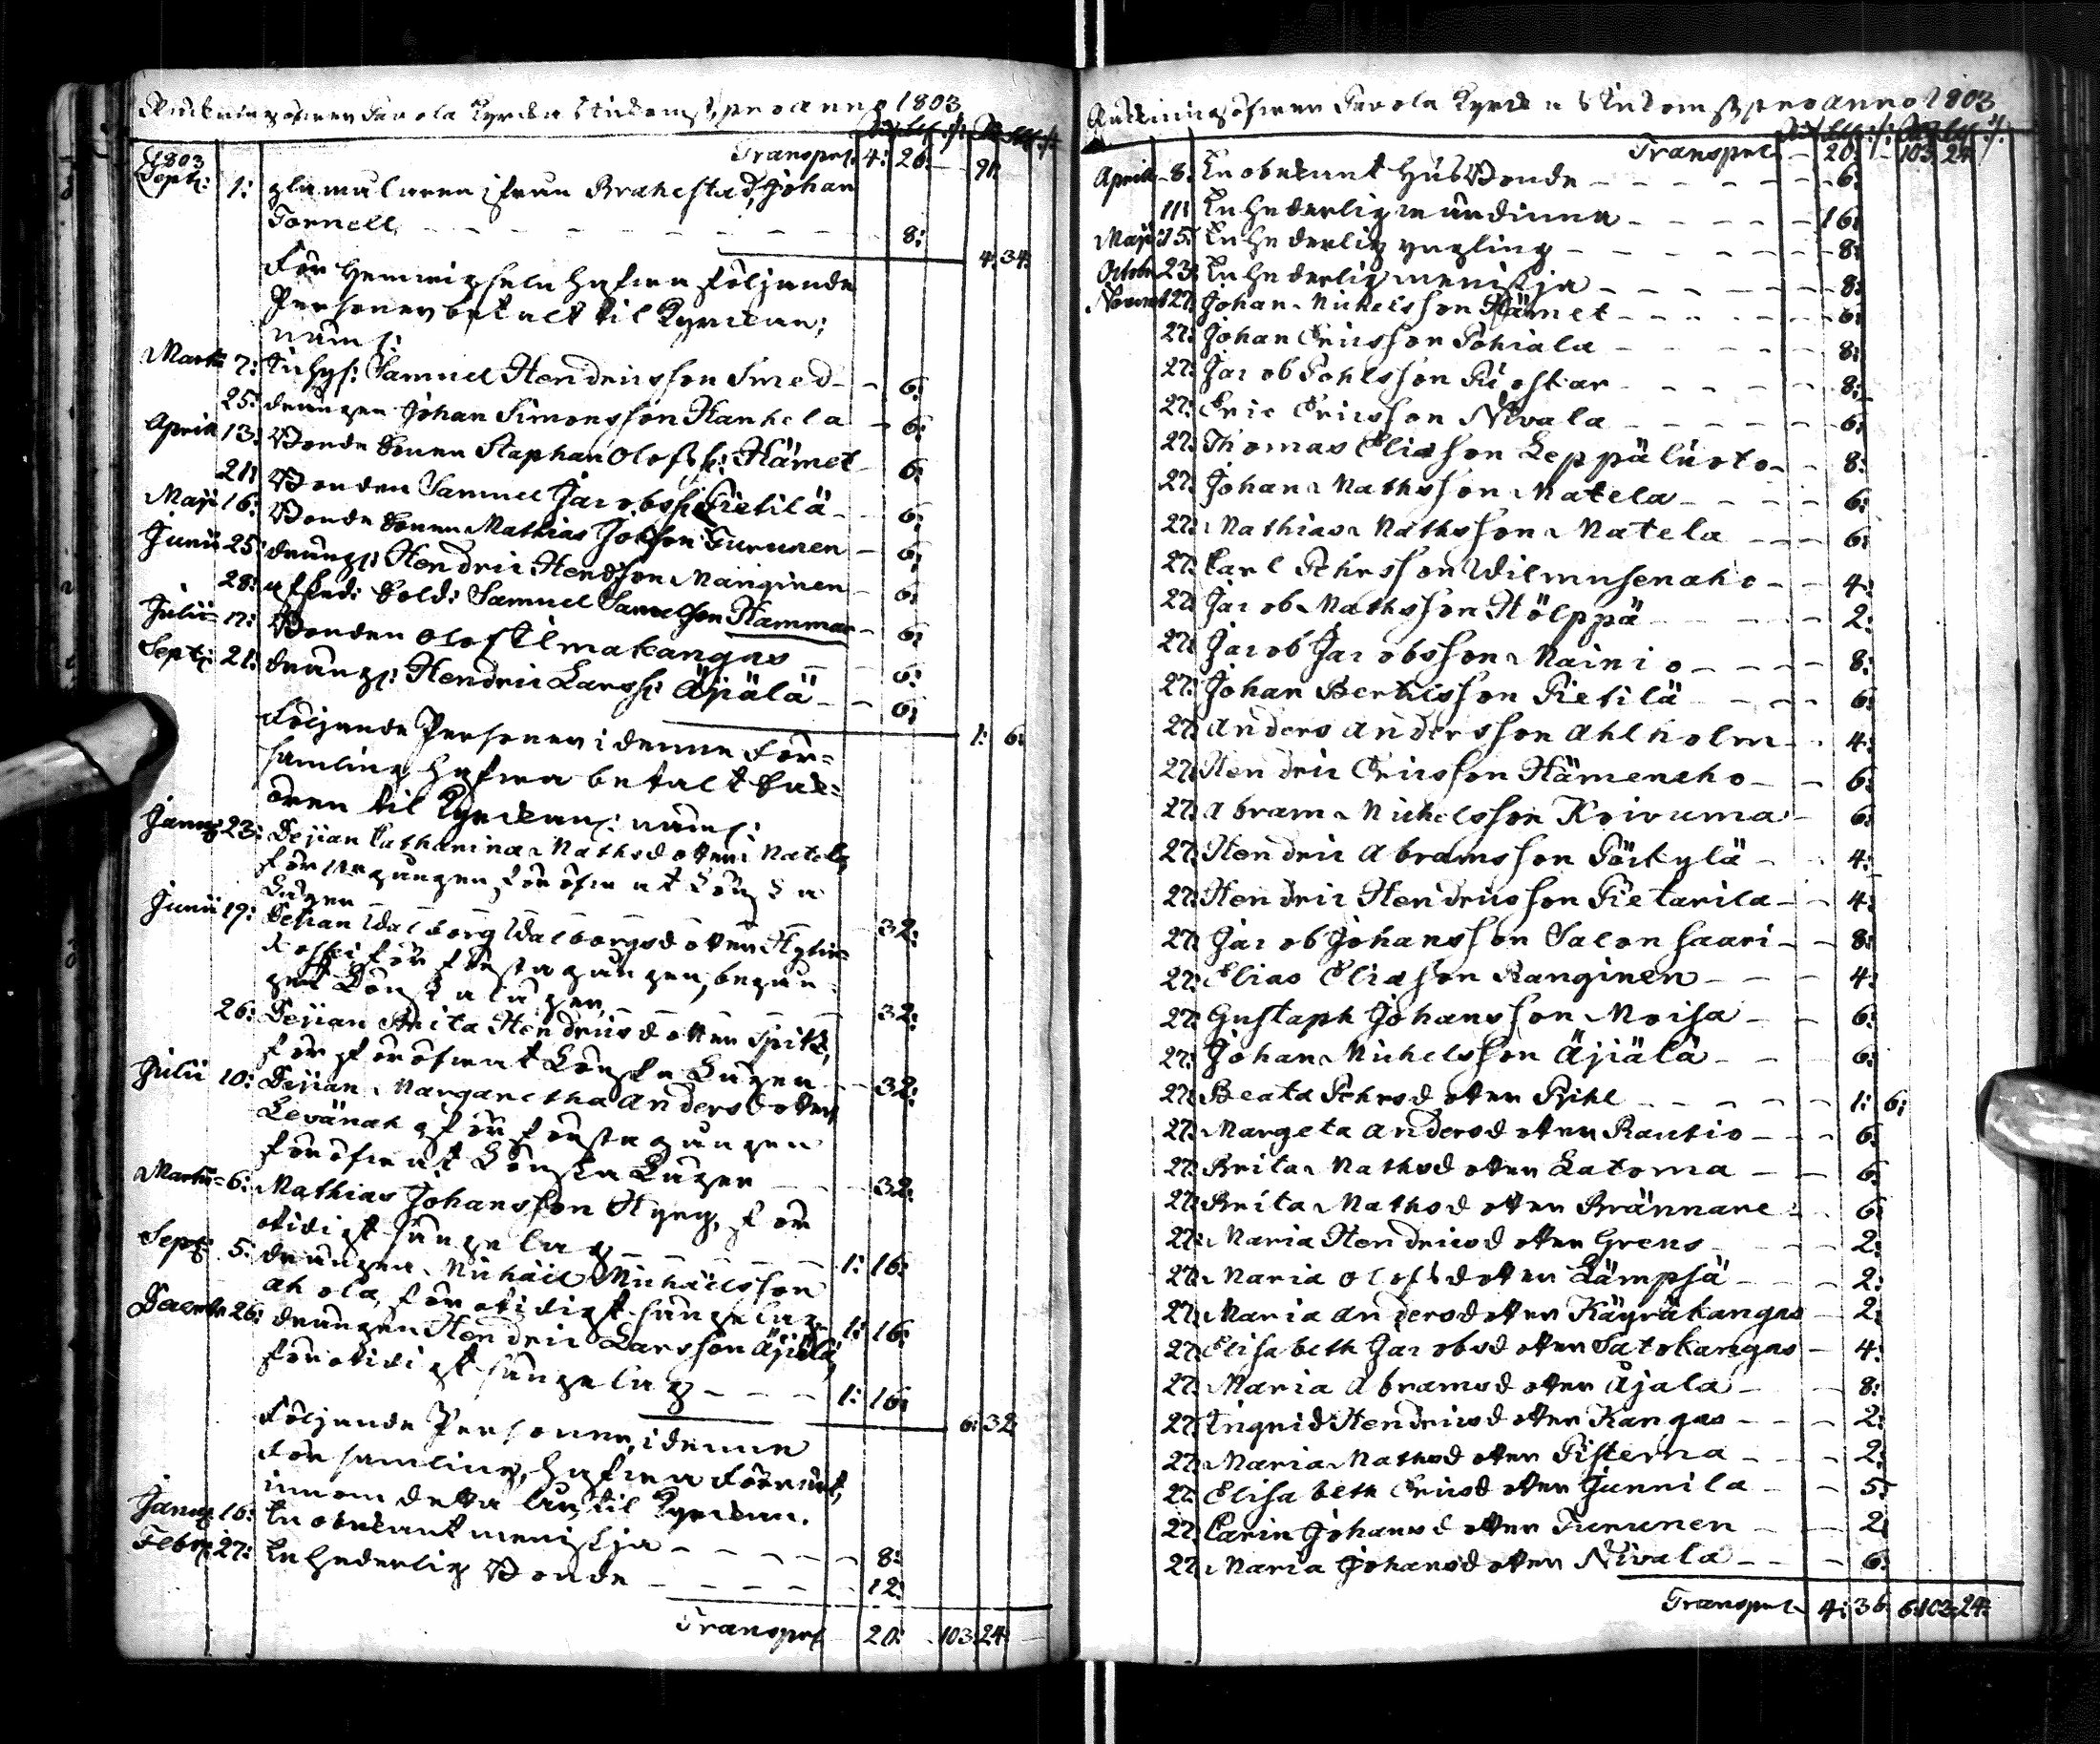 Räkning öfver Pavola Kyrckas Inkomst, pro anno 1803
Transport. 4: 26: – 91
1803
Sept: 1: glasmästaren ifrån Brahestad, Johan
Tornell – – – 8:
4: 34:
För hemvigseln hafva följande
Personer betalt til Kyrckan;
näml:
Martii 7: Inhys: Samuel Hendricsson Smed – 6:
25: drängen Johan Simonsson Hanhela – 6:
Aprill 13: Bonde Sonen Staphan Olofss: Hämet – 6:
21: Bonden Samuel Jacobss: Pietilä – 6:
Maji 16: Bonde Sonen Mathias Johsson Turunen – 6:
Junii 25: dräng: Hendric Hendsson Manginen – 6:
28: afsked: Sold: Samuel Samelsson Hammar – 6:
Julii 17: Bonden Olof Ilmakangas – 6:
Sept: 21: dräng: Hendric Larss: Äjälä – 6:
1: 6:
Följande Personer i denne För=
samling hafva betalt Sak=
ören til Kyrckan: näml:
Janu: 23: Pejian Catharina Mathsdotter Matela,
för gången föröfvat Löns ka
Läger – 32:
Junii 19: Pejian Walborg Walborgsdotter Hylin=
koski för första gången, begån=
gne Lönskaläger, – 32:
26: Pejian Brita Hendricsdotter Spitz,
för föröfvat Lönska Läger – 32:
Julii 10: Pejian Margaretha Andersdotter
Levänah, för första gången
föröfvat Lönska Läger – 32:
Martii 6: Mathias Johansson Hyry, för
otidigt sängelag – 1: 16:
Sept: 5: drängen Michäel Michäelsson
Ahola, för otidigt sängelag 1: 16:
Decemb: 26: drängen Hendric Larsson Äjälä,
för otidigt sängelag – 1: 16:
6: 32
Följande Personer, i denne
Församling, hafva förärt,
innom detta år, til Kyrckan.
Janu: 16: En obekant meniskja – 8:
Febru: 27: En hederlig Bonde – 12:
Transport 20: . 103: 24:
Räkning öfver Pavola Kyrckas Inkomst, pro anno 1803
Transport – 20: – 103: 24:
Aprill 8: En obekant Hus Bonde – 6:
11: En hederlig mandinna – 16:
Maji 15: En hederlig yngling – 8:
October 23: En hederlig meniskja – 8:
Novemb 27: Johan Michelsson Hämet – 6:
27: Johan Ericsson Pohiala – 8:
27: Jacob Pohlsson Piostar – 8:
27: Eric Ericsson Nivala – 6:
27: Thomas Eliasson Leppäluoto – 8:
27: Johan Mathsson Matela – 6:
27: Mathias Mathsson Matela – 6:
27: Carl Pehrsson Wilmusenaho – 4:
27: Jacob Mathsson Hölppä – 2:
27: Jacob Jacobsson Mainio – 8:
27: Johan Bertelsson Pietilä – 6:
27: Anders Andersson Ahlholm – 4:
27: Hendric Ericsson Hämeneho – 6:
27: Abram Michelsson Koivuma – 6:
27: Hendric Abramsson Pöckylä – 4:
27: Hendric Hendricsson Pietarila – 4:
27: Jacob Johansson Salonsaari – 8:
27: Elias Eliasson Ranginen – 4:
27: Gustaph Johansson Moisa – 6:
27: Johan Michelsson Äjiälä – 6:
27: Beata Pehrsdotter Pihl – 1: 6:
27: Margeta Andersdotter Rautio – 6:
27: Brita Mathsdotter Latoma – 6:
27: Brita Mathsdotter Brännare – 6:
27: Maria Hendricsdotter Grens – 2:
27: Maria Olofsdotter Lämpsä – 2:
27: Maria Andersdotter Käyräkangas – 2:
27: Elisabeth Jacobsdotter Satokangas – 4:
27: Maria Abramsdotter Äjala – 8:
27: Ingrid Hendricsdotter Kangas – 2:
27: Maria Mathsdotter Pisterna – 2:
27: Elisabeth Ericsdotter Junnila – 5:
27: Carin Johansdotter Turunen – 2:
27: Maria Johansdotter Nivala – 6:
Transport 4: 36: 6: 103: 24: